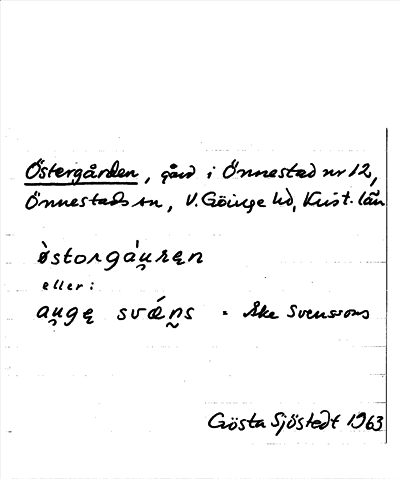 Östergården, gård i Önnestad nr 12,
Önnestads sn, V. Göinge hd, Krist. län
østorgáu̯ʀen
eller:
au̯gę svǽn̰s = Åke Svenssons
Gösta Sjöstedt 1963